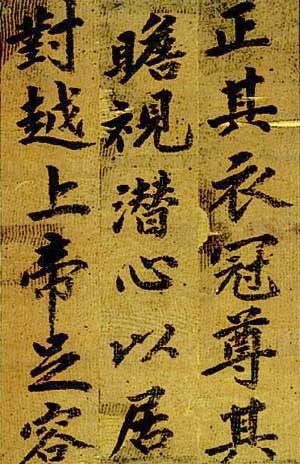 正其衣冠尊其
瞻視潜心以居
對越上帝之容